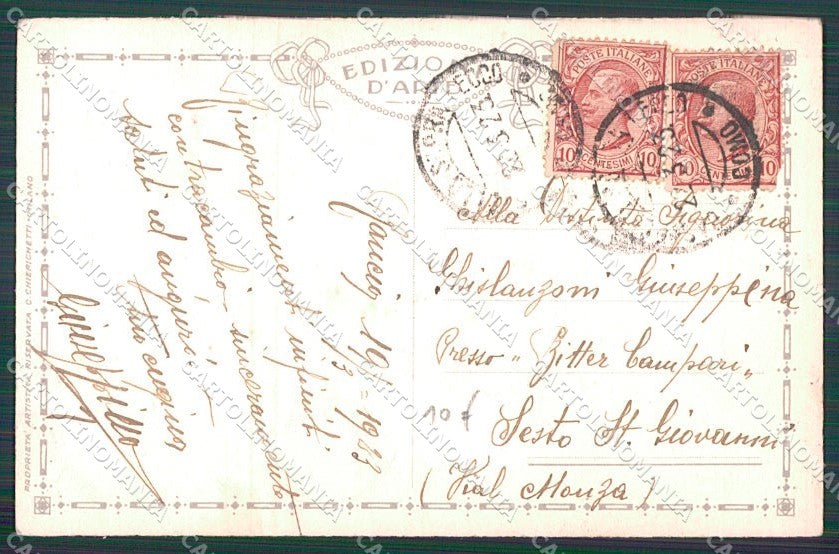 EDIZIONE D'ARTE
POSTE ITALIANE
10 CENTESIMI 10
POSTE ITALIANE
10 CENTESIMI 10
LECCO
COMO
19/3/1923
Ringraziamenti infiniti
contracambio sinceramente
saluti ed auguri
tuo cugino
Giuseppino
Alla Distinta Signorina
Ghislanzoni Giuseppina
Presso "Bitter Campari"
Sesto St. Giovanni
(Vial Monza)
10
PROPRIETÀ ARTISTICA RISERVATA C. CHIERICHETTI MILANO
CARTOLINOMANIA